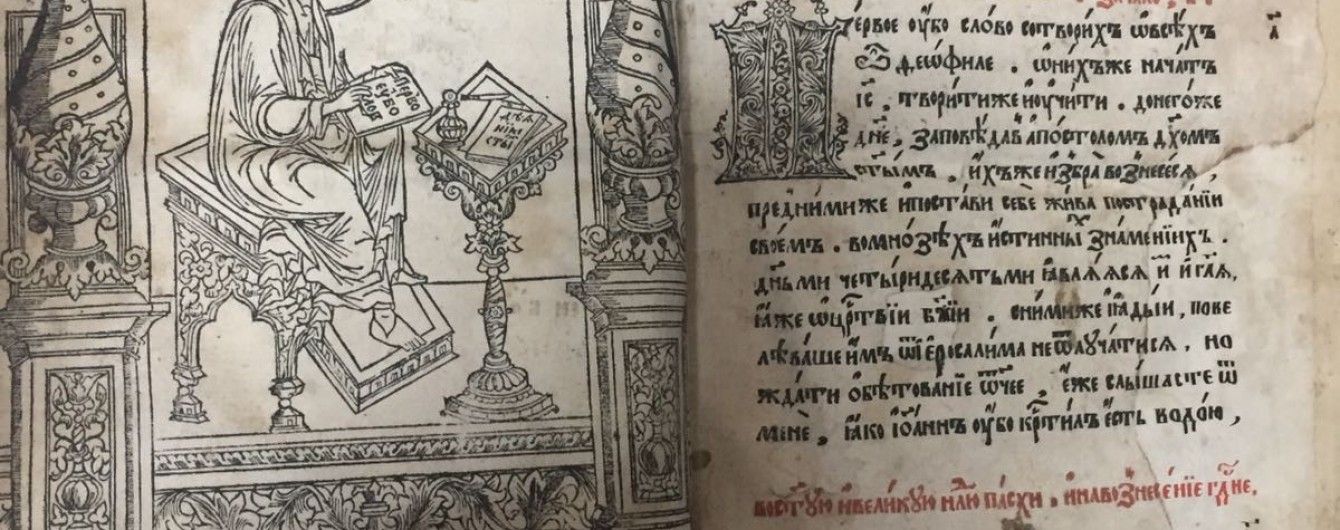 перво
еѹбо
слове
дѣѧ
нїѧ
сты
Первое ѹбо слово сотворихъ ѡвсѣхъ
ѽ деѡфиле . ѡнихъже начатъ
їс҃ . творитиже иѹчити . донегоже
дне , заповѣдавъ апостоломъ дх҃омъ
ст҃ымъ . ихъже избра вознесесѧ ,
преднимиже ипостави себе жива пострадании
своемъ . вомнозѣхъ истинныⷯ знаменїихъ .
дн҃ьми четыридесѧтьми ꙗвлѧѧсѧ и҆м и҆ гл҃ѧ ,
ꙗже ѡцр҃твїи бж҃їи . снимиже ꙗдыи , пове
лѣваше имъ ѿ іеросалима неѿлучатисѧ , но
ждати обѣтованїе ѿч҃ее , еже слышасте ѿ
мене , ꙗко іоаннъ ѹбо кр҃тилъ есть водою ,
вост҃ую ивеликую нл҃ю пасхи . инавознесенїе гд҃не .